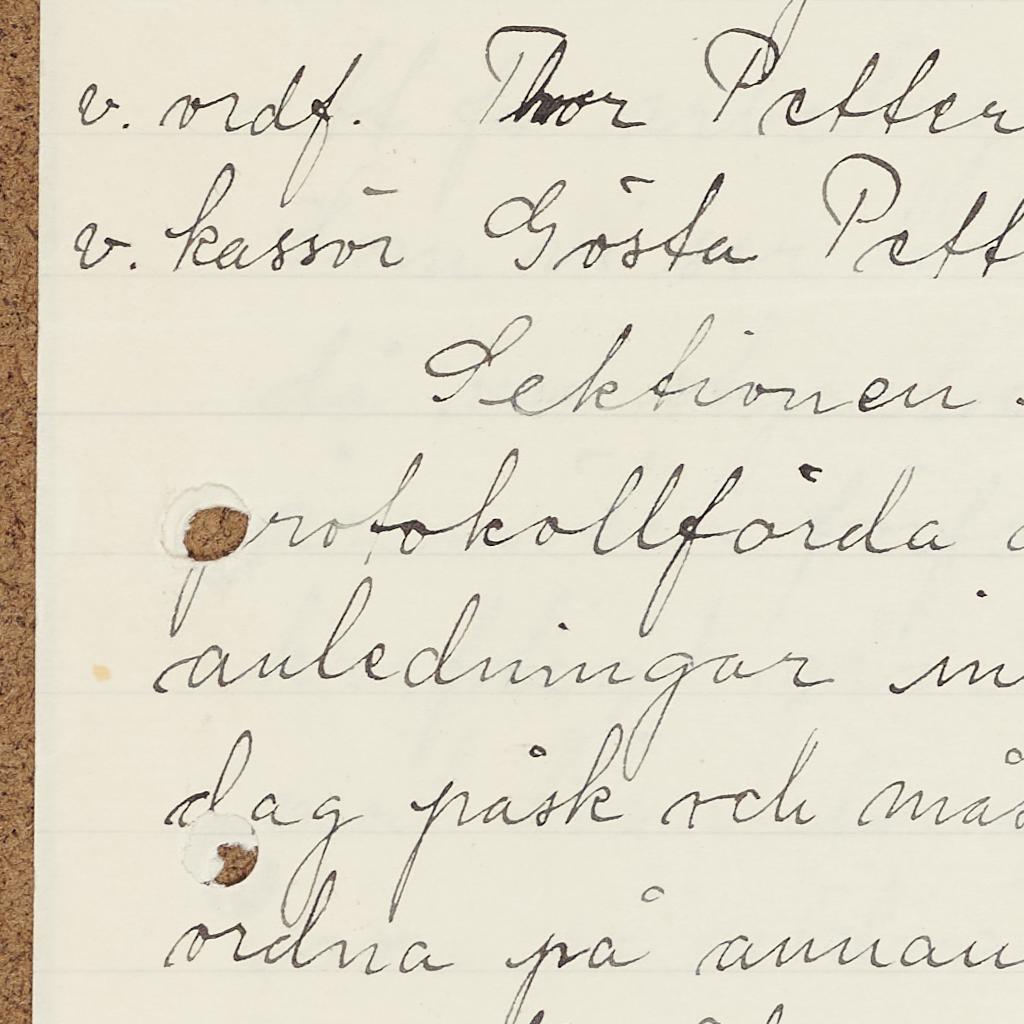 v. ordf. Thor Petter
v. kassör Gösta Pett
Sektionen
protokollförda
anledningar in
dag påsk och mås
ordna på annan